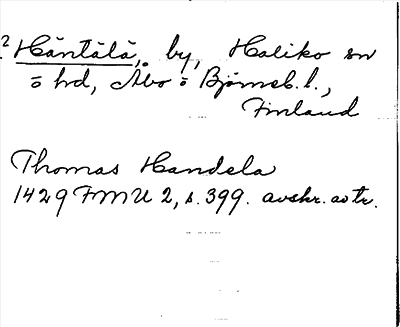 ? Häntälä, by, Haliko sn
o hd, Åbo o Björneb. l.,
Finland
Thomas Handela
1429 FMU 2, s. 399. avskr. av tr.